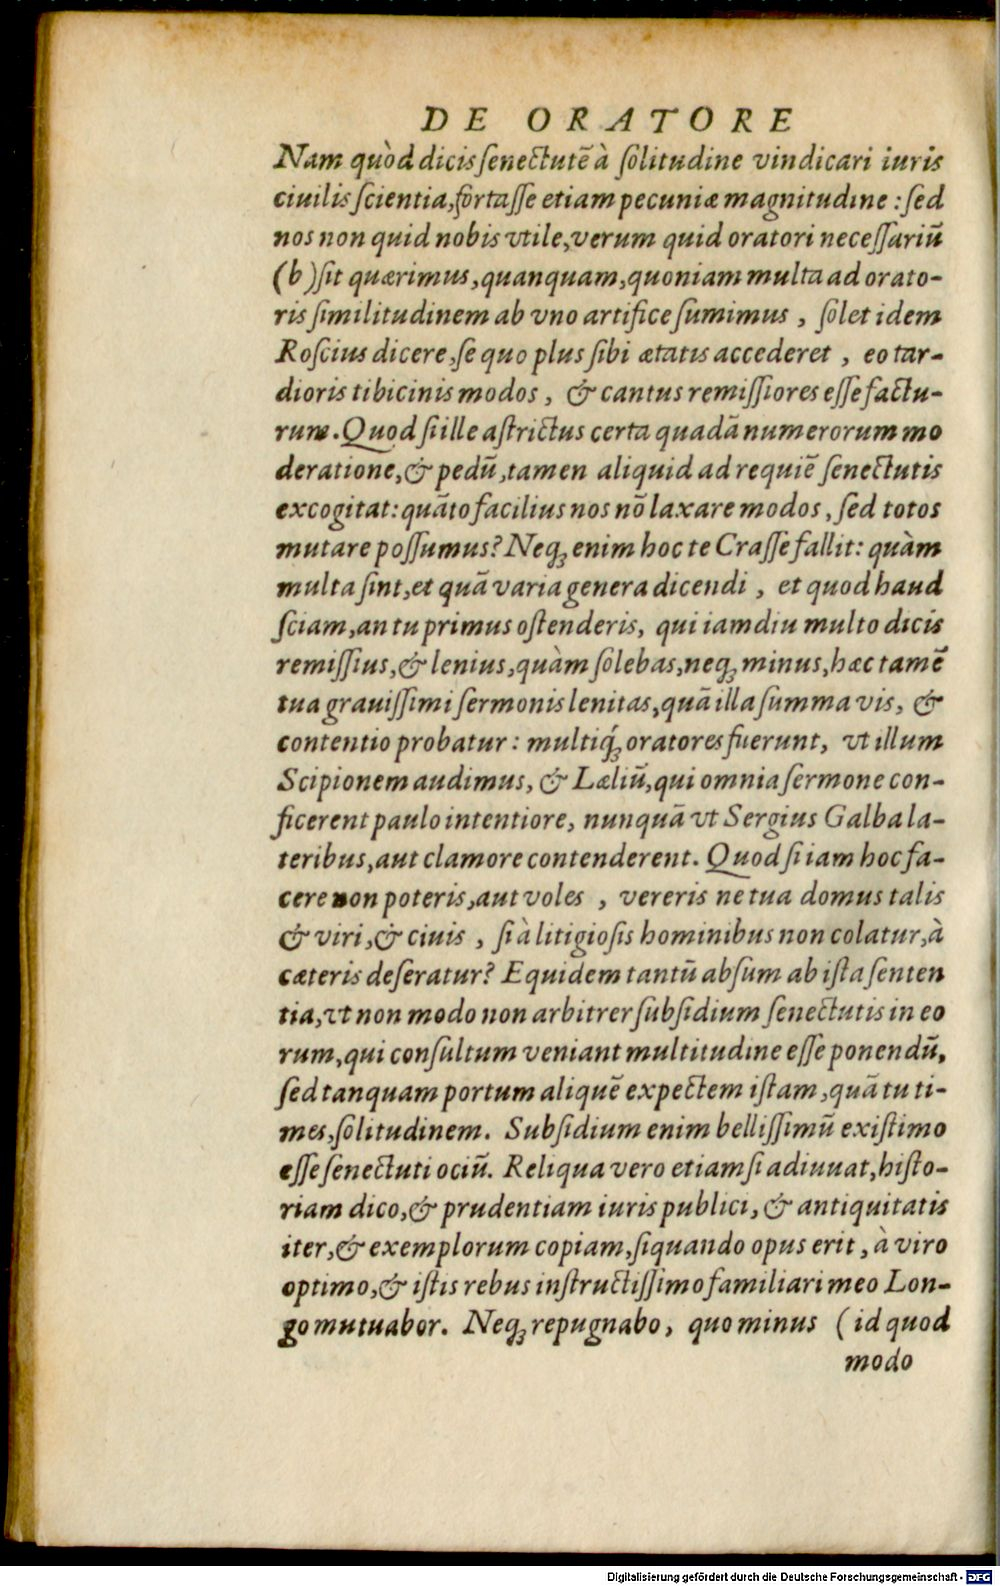 DE ORATORE
Nam quòd dicis ſenectutē à ſolitudine vindicari iuris
ciuilis ſcientia, fortaſſe etiam pecuniæ magnitudine : ſed
nos non quid nobis vtile, verum quid oratori neceſſariū
(b) ſit quærimus, quanquam, quoniam multa ad orato-
ris ſimilitudinem ab vno artifice ſumimus , ſolet idem
Roſcius dicere, ſe quo plus ſibi ætatis accederet , eo tar-
dioris tibicinis modos , & cantus remiſſiores eſſe factu-
rum. Quod ſi ille aſtrictus certa quadā numerorum mo
deratione, & pedū, tamen aliquid ad requiē ſenectutis
excogitat: quāto facilius nos nō laxare modos, ſed totos
mutare poſſumus? Neqꝫ enim hoc te Craſſe fallit: quàm
multa ſint, et quā varia genera dicendi , et quod haud
ſciam, an tu primus oſtenderis, qui iamdiu multo dicis
remiſſius, & lenius, quàm ſolebas, neqꝫ minus, hæc tamē
tua grauiſſimi ſermonis lenitas, quā illa ſumma vis, &
contentio probatur : multiqꝫ́ oratores fuerunt, vt illum
Scipionem audimus, & Læliū, qui omnia ſermone con-
ficerent paulo intentiore, nunquā vt Sergius Galba la-
teribus, aut clamore contenderent. Quod ſi iam hoc fa-
cere non poteris, aut voles , vereris ne tua domus talis
& viri, & ciuis , ſi à litigioſis hominibus non colatur, à
cæteris deſeratur? Equidem tantū abſum ab iſta ſenten
tia, vt non modo non arbitrer ſubſidium ſenectutis in eo
rum, qui conſultum veniant multitudine eſſe ponendū,
ſed tanquam portum aliquē expectem iſtam, quā tu ti-
mes, ſolitudinem. Subſidium enim belliſſimū exiſtimo
eſſe ſenectuti ociū. Reliqua vero etiam ſi adiuuat, hiſto-
riam dico, & prudentiam iuris publici, & antiquitatis
iter, & exemplorum copiam, ſiquando opus erit, à viro
optimo, & iſtis rebus inſtructiſſimo familiari meo Lon-
go mutuabor. Neqꝫ repugnabo, quo minus (id quod
modo
Digitalisierung gefördert durch die Deutsche Forschungsgemeinschaft - DFG